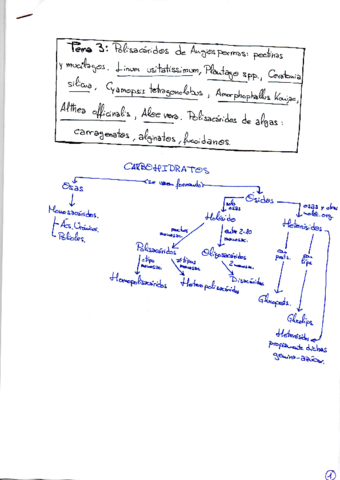 Tema 3: Polisacáridos de Angiospermas: pectinas
y mucílagos. Linum usitatissimum, Plantago spp., Ceratonia
siliqua, Cyamopsis tetragonolobus, Amorphophallus Konjac,
Althea officinalis, Aloe vera. Polisacáridos de algas:
carragenatos, alginatos, fucoidanos.
CARBOHIDRATOS
Osas
Ósidos
Monosacáridos.
Ac. Urónicos.
Polioles.
solo osas
osas + otras moléc. org.
Holósido
Heterósidos
muchos monosac.
entre 2-10 monosac.
Polisacáridos
Oligosacáridos
1 tipo monosac.
≠ tipos monosac.
2 monosac.
con prots.
con líps.
Homopolisacáridos
Heteropolisacáridos
Disacáridos
Glucoprots.
Glucolíps.
Heterósidos
propiamente dichos
genina-azúcar.
1